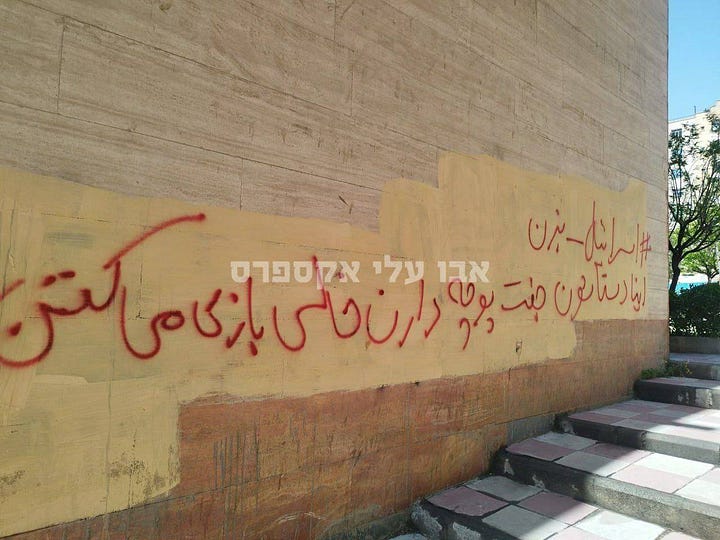 #اسرائیل_بزن
اینا دستاشون جفت پوچه دارن خالی بازی می کنن
אבו עלי אקספרס